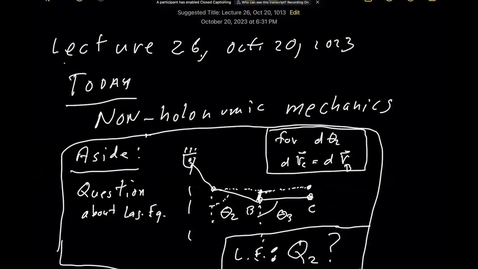 A participant has enabled Closed Captioning
Who can see this transcript? Recording On
Suggested Title: Lecture 26, Oct 20, 1013 Edit
October 20, 2023 at 6:31 PM
Lecture 26, oct. 20, 2023
TODAY
Non-holonomic mechanics
Aside:
Question
about Lag. Eq.
θ2
B
θ3
C
for dθ2
d r⃗c = d r⃗D
L.E.: Q2?